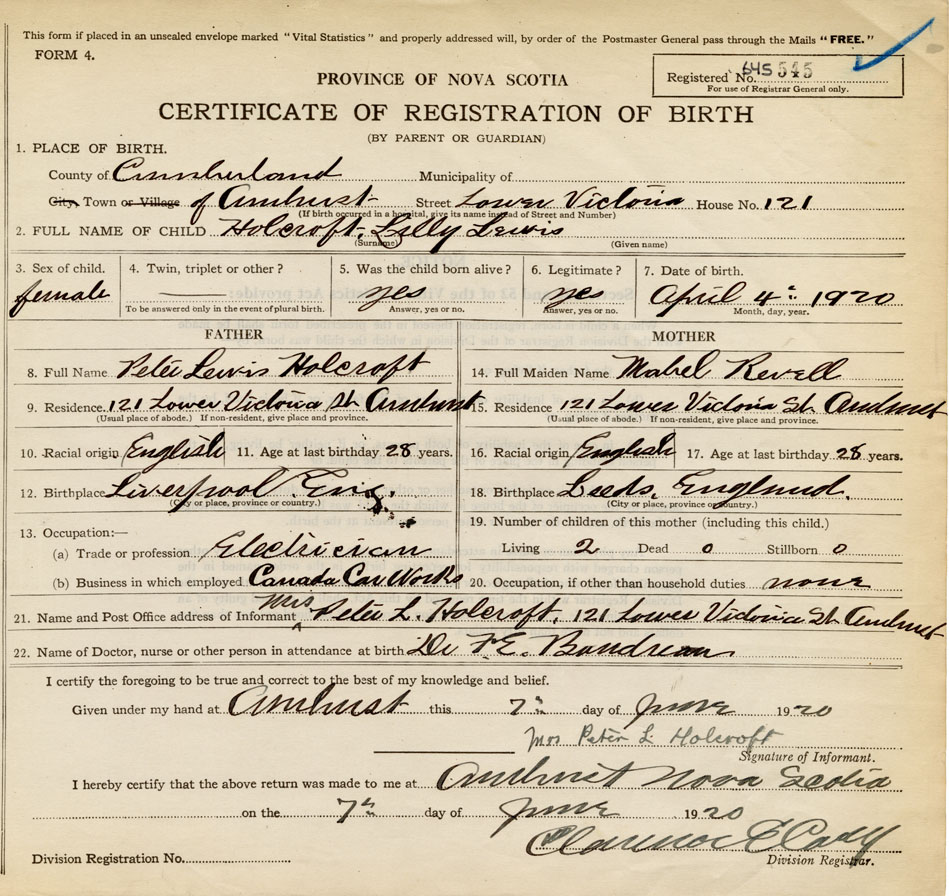 This form if placed in an unsealed envelope marked "Vital Statistics" and properly addressed will, by order of the Postmaster General pass through the Mails "FREE."
FORM 4.
Registered No. 645 545
For use of Registrar General only.
PROVINCE OF NOVA SCOTIA
CERTIFICATE OF REGISTRATION OF BIRTH
(BY PARENT OR GUARDIAN)
1. PLACE OF BIRTH.
County of Cumberland Municipality of
City, Town or Village of Amhurst Street Lower Victoria House No. 121
(If birth occurred in a hospital, give its name instead of Street and Number)
2. FULL NAME OF CHILD Holcroft, Lilly Lewis
(Surname) (Given name)
3. Sex of child. 4. Twin, triplet or other? 5. Was the child born alive? 6. Legitimate? 7. Date of birth.
female yes yes April 4th 1920
To be answered only in the event of plural birth. Answer, yes or no. Answer, yes or no. Month, day, year.
FATHER MOTHER
8. Full Name Peter Lewis Holcroft 14. Full Maiden Name Mabel Revell
9. Residence 121 Lower Victoria St Amhurst 15. Residence 121 Lower Victoria St. Amhurst
(Usual place of abode.) If non-resident, give place and province. (Usual place of abode.) If non-resident, give place and province.
10. Racial origin English 11. Age at last birthday 28 years. 16. Racial origin English 17. Age at last birthday 28 years.
12. Birthplace Liverpool Eng. 18. Birthplace Leeds, England.
(City or place, province or country.) (City or place, province or country.)
13. Occupation:— 19. Number of children of this mother (including this child.)
(a) Trade or profession Electrician Living 2 Dead 0 Stillborn 0
(b) Business in which employed Canada Car Works 20. Occupation, if other than household duties none
21. Name and Post Office address of Informant Mrs Peter L. Holcroft, 121 Lower Victoria St Amhurst
22. Name of Doctor, nurse or other person in attendance at birth Dr F.E. Boudreau
I certify the foregoing to be true and correct to the best of my knowledge and belief.
Given under my hand at Amhurst this 7th day of June 1920
Mrs Peter L Holcroft
Signature of Informant.
I hereby certify that the above return was made to me at Amhurst Nova Scotia
on the 7th day of June 1920
Clarence E Cady
Division Registration No. Division Registrar.